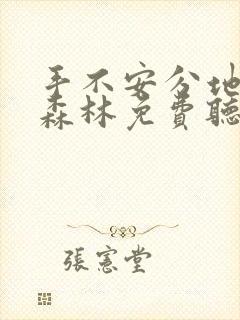 手不安分地
森林免費聽
張憲堂